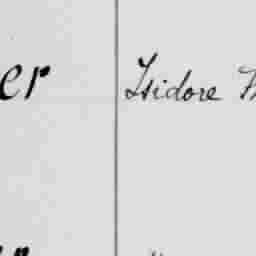 er Isidore